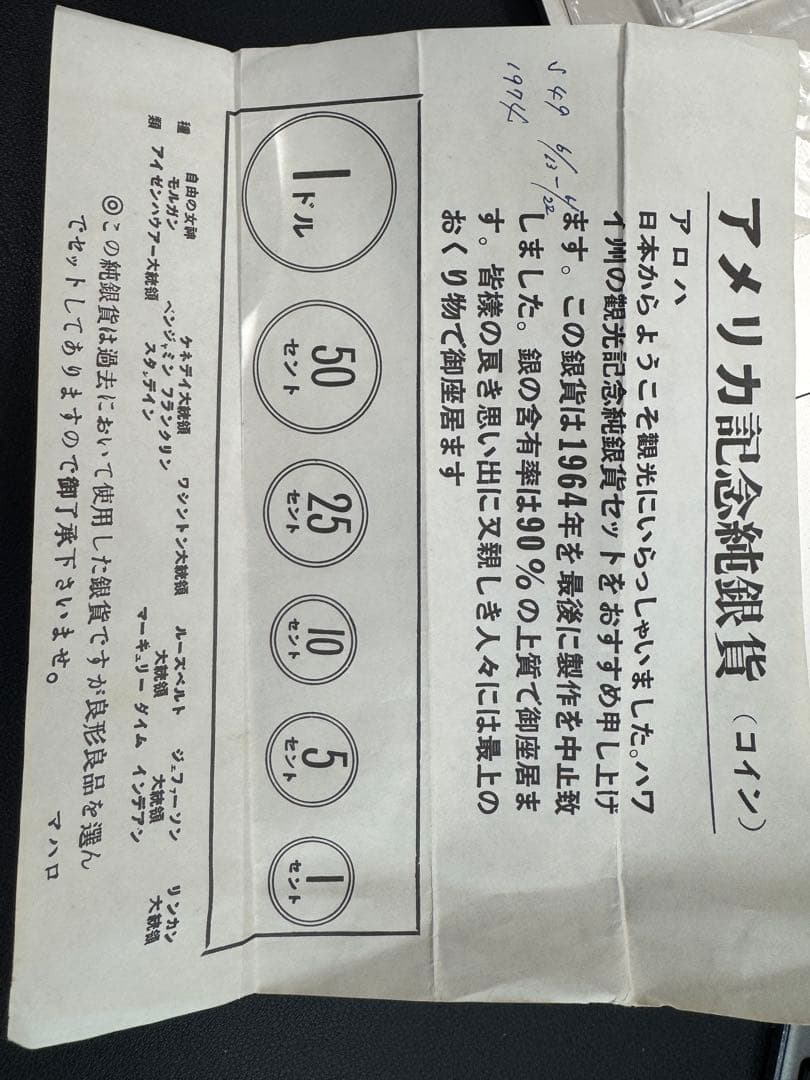 アメリカ記念純銀貨（コイン）
S49 6/13-6/22
1974
アロハ
日本からようこそ観光にいらっしゃいました。ハワ
イ州の観光記念純銀貨セットをおすすめ申し上げ
ます。この銀貨は1964年を最後に製作を中止致
しました。銀の含有率は90%の上質で御座居ま
す。皆様の良き思い出に又親しき人々には最上の
おくり物で御座居ます
1ドル
50セント
25セント
10セント
5セント
1セント
種類
自由の女神
モルガン
アイゼンハウアー大統領
ケネデイ大統領
ベンジャミン フランクリン
スタンデイン
ワシントン大統領
ルーズベルト大統領
マーキュリー ダイム
ジェファーソン大統領
インデアン
リンカン大統領
◎この純銀貨は過去において使用した銀貨ですが良形良品を選ん
でセットしてありますので御了承下さいませ。
マハロ